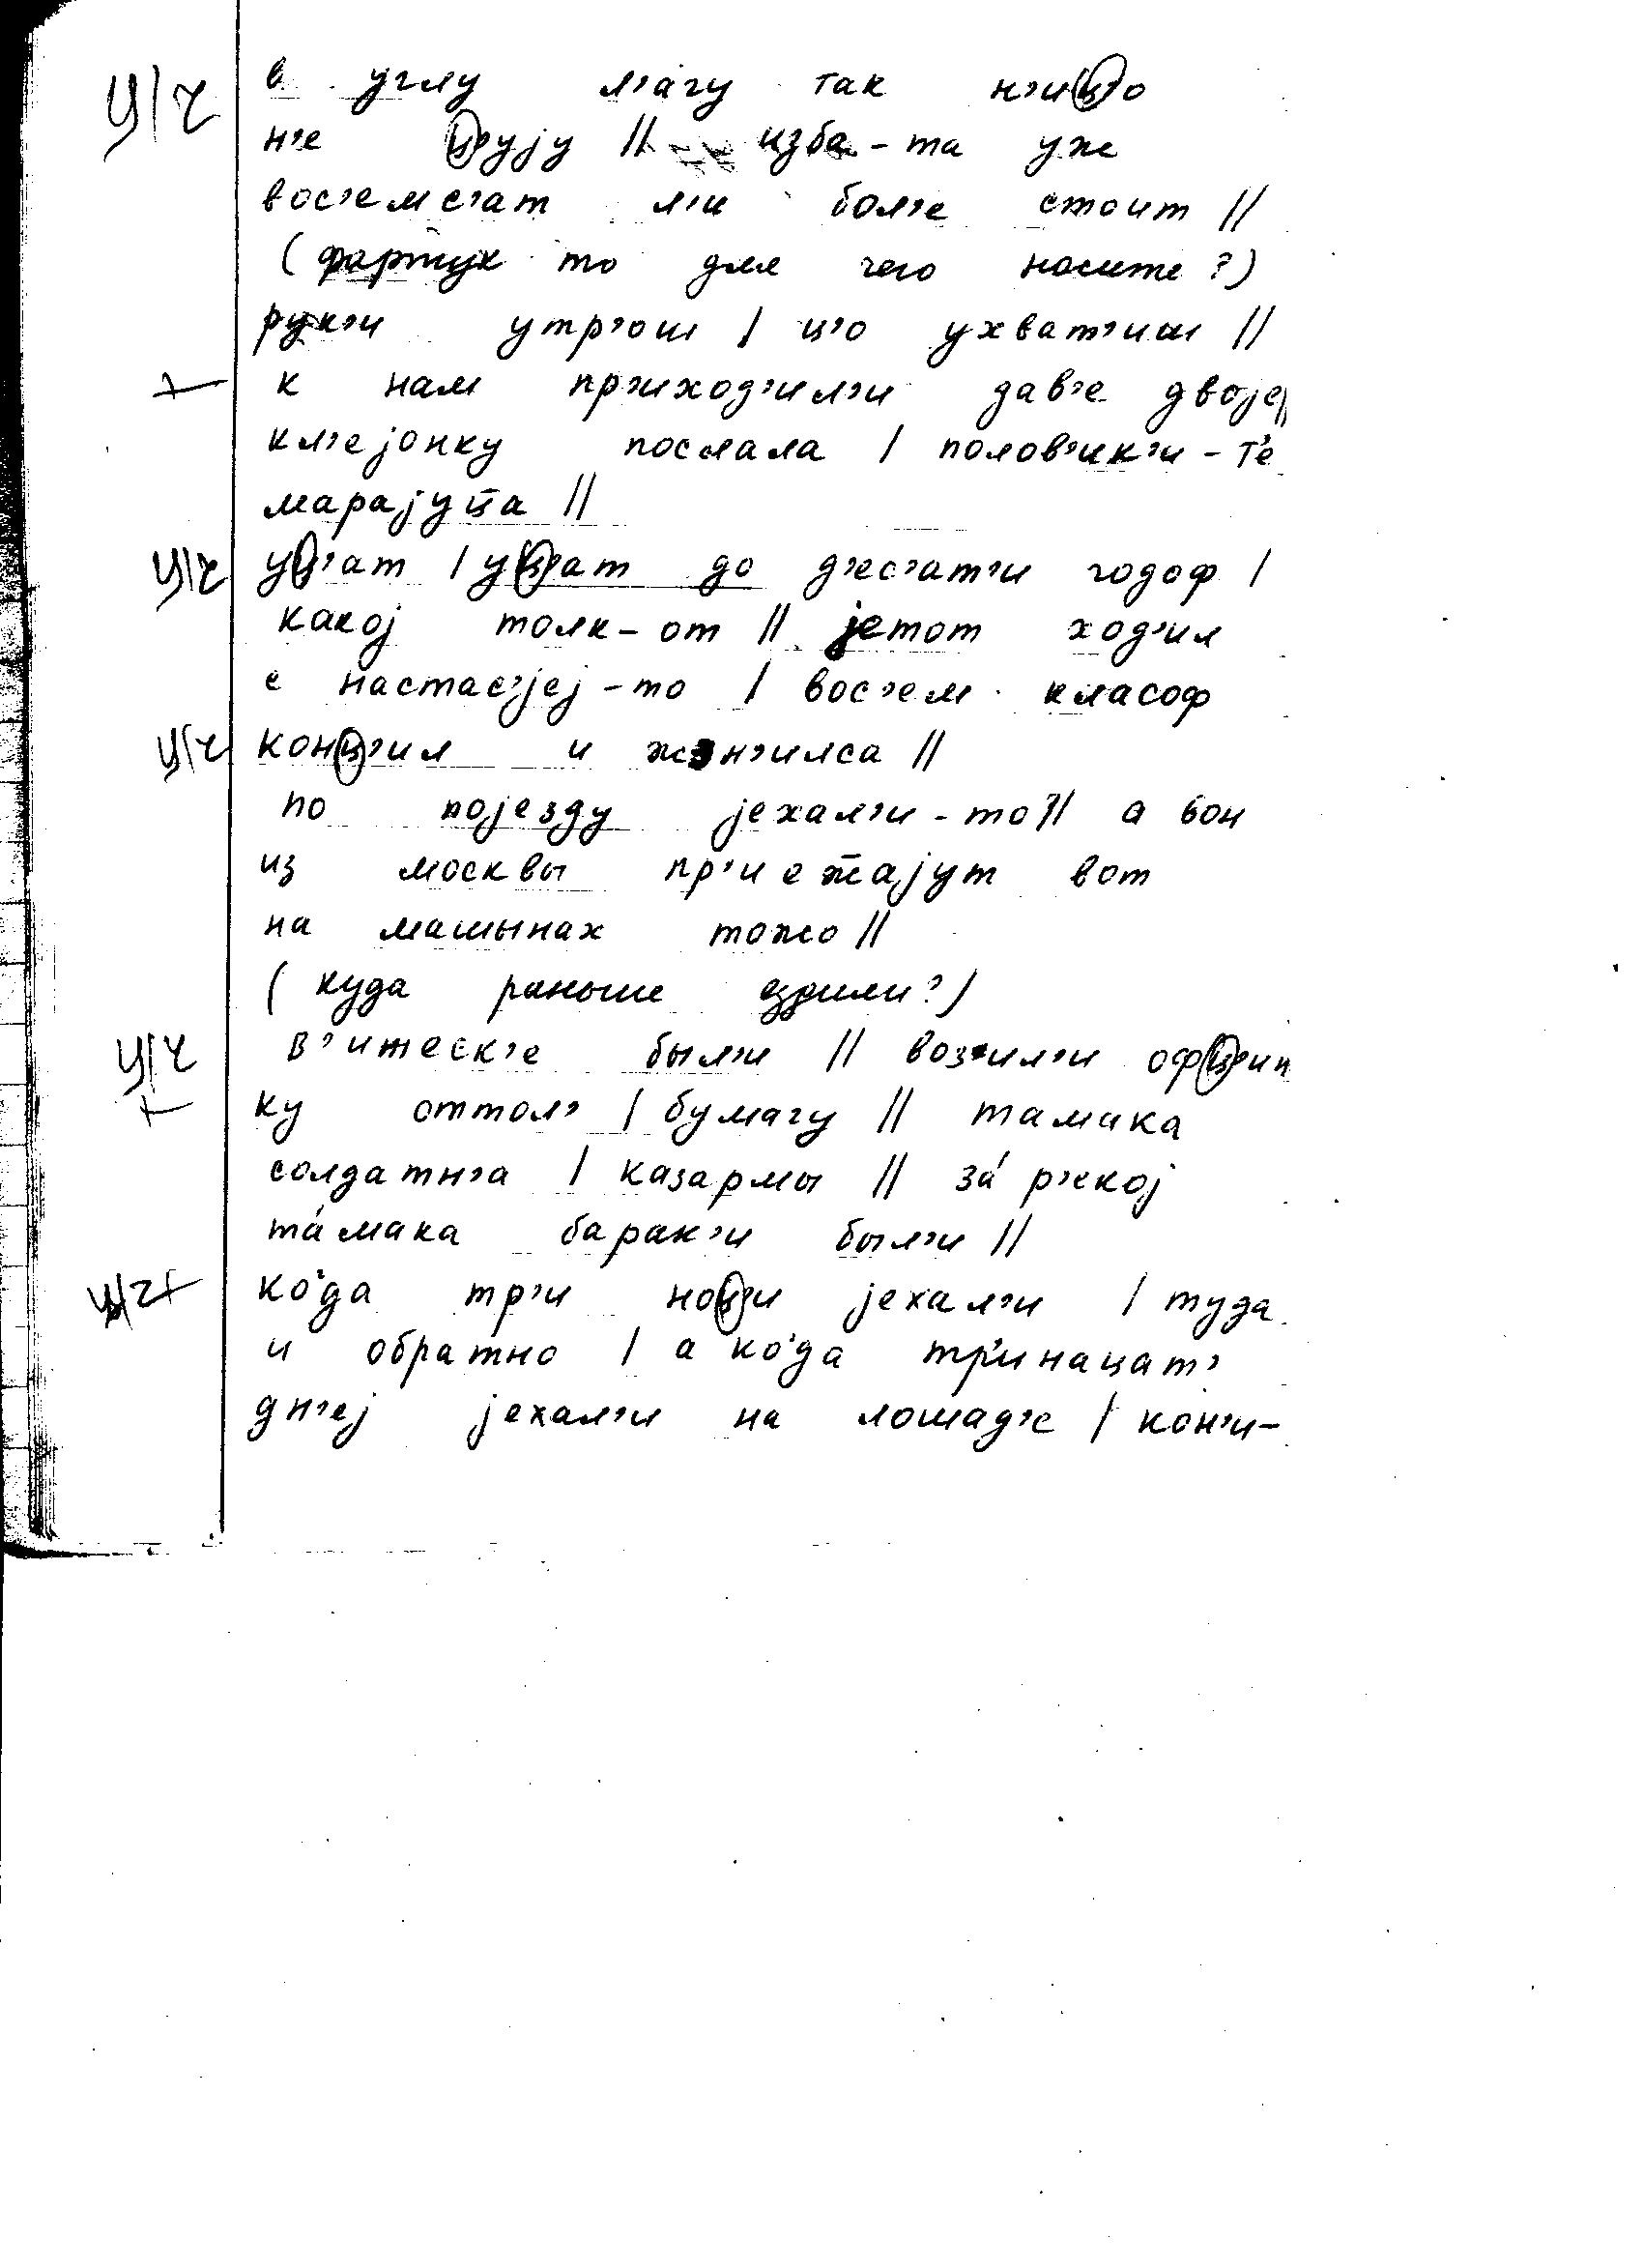 ц/ч в углу л'агу так н'иц'о
н'е ц'ују || изба-та уж
вос'емс'ат л'и бол'е стоит ||
(фартук то для чего носите?)
рук'и утр'ош | ц'о ухват'иш ||
+ к нам пр'иход'ил'и дав'е двоје||
кл'ејонку послала | полов'ик'и-т'е
марајуц̄а ||
ц/ч уц'ат | уц'ат до д'ес'ат'и годоф |
какој толк-от || јетот ход'ил
с настас'јеј-то | вос'ем класоф
ц/ч конц'ил и жэн'илса ||
по појезду јехал'и-то?|| а вон
из москвы пр'иеж̄ајут вот
на машынах тожо ||
(куда раньше ездили?)
ц/ч в'итеск'е был'и || воз'ил'и офц'ин
+ ку оттол' | бумагу || тамака
солдатн'а | казармы || за́ р'екој
та́мака барак'и был'и ||
ц/ч+ ко'да тр'и ноц'и јехал'и | туда
и обратно | а ко'да тр'инацат'
дн'еј јехал'и на лошад'е | кон'и-